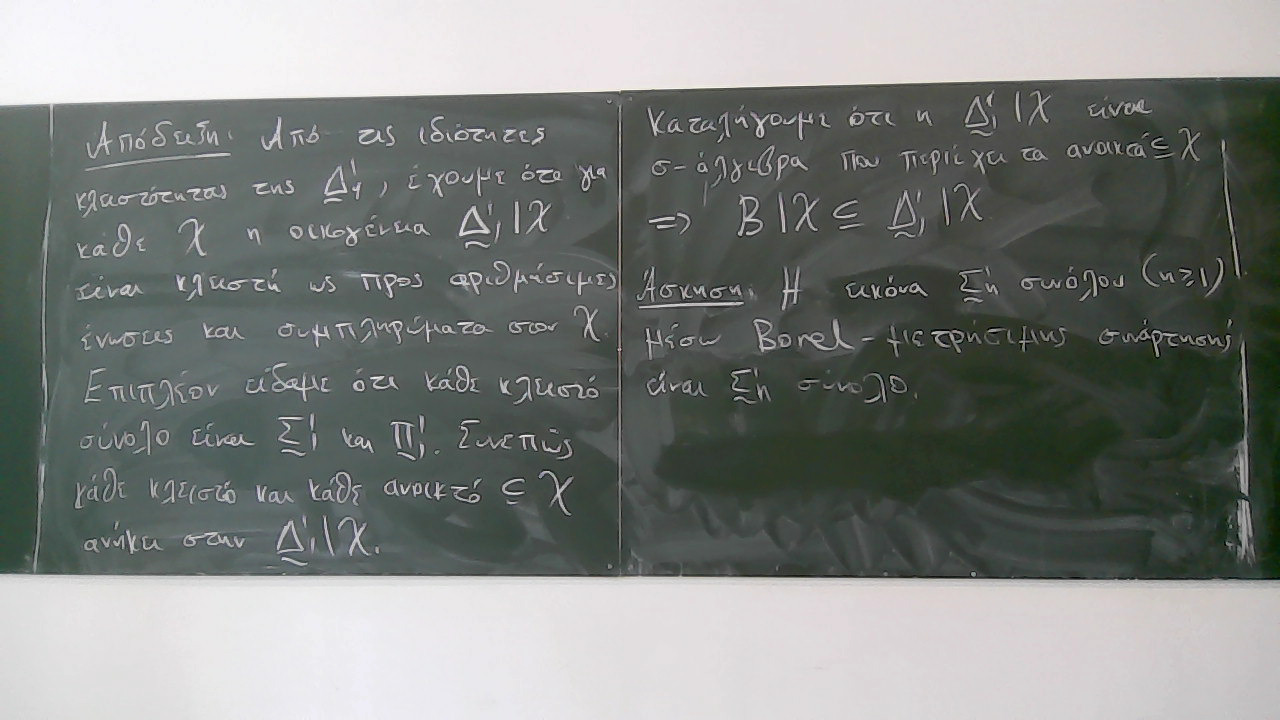 Απόδειξη: Από τις ιδιότητες
κλειστότητας της Δ̰¹₁, έχουμε ότι για
κάθε X η οικογένεια Δ̰¹₁|X
είναι κλειστή ως προς αριθμήσιμες
ενώσεις και συμπληρώματα στον X.
Επιπλέον είδαμε ότι κάθε κλειστό
σύνολο είναι Σ̰¹₁ και Π̰¹₁. Συνεπώς
κάθε κλειστό και κάθε ανοικτό ⊆ X
ανήκει στην Δ̰¹₁|X.
Καταλήγουμε ότι η Δ̰¹₁|X είναι
σ-άλγεβρα που περιέχει τα ανοικτά ⊆ X
=> B|X ⊆ Δ̰¹₁|X
Άσκηση: Η εικόνα Σ̰¹ₙ συνόλου (n≥1)
μέσω Borel-μετρήσιμης συνάρτησης
είναι Σ̰¹ₙ σύνολο.